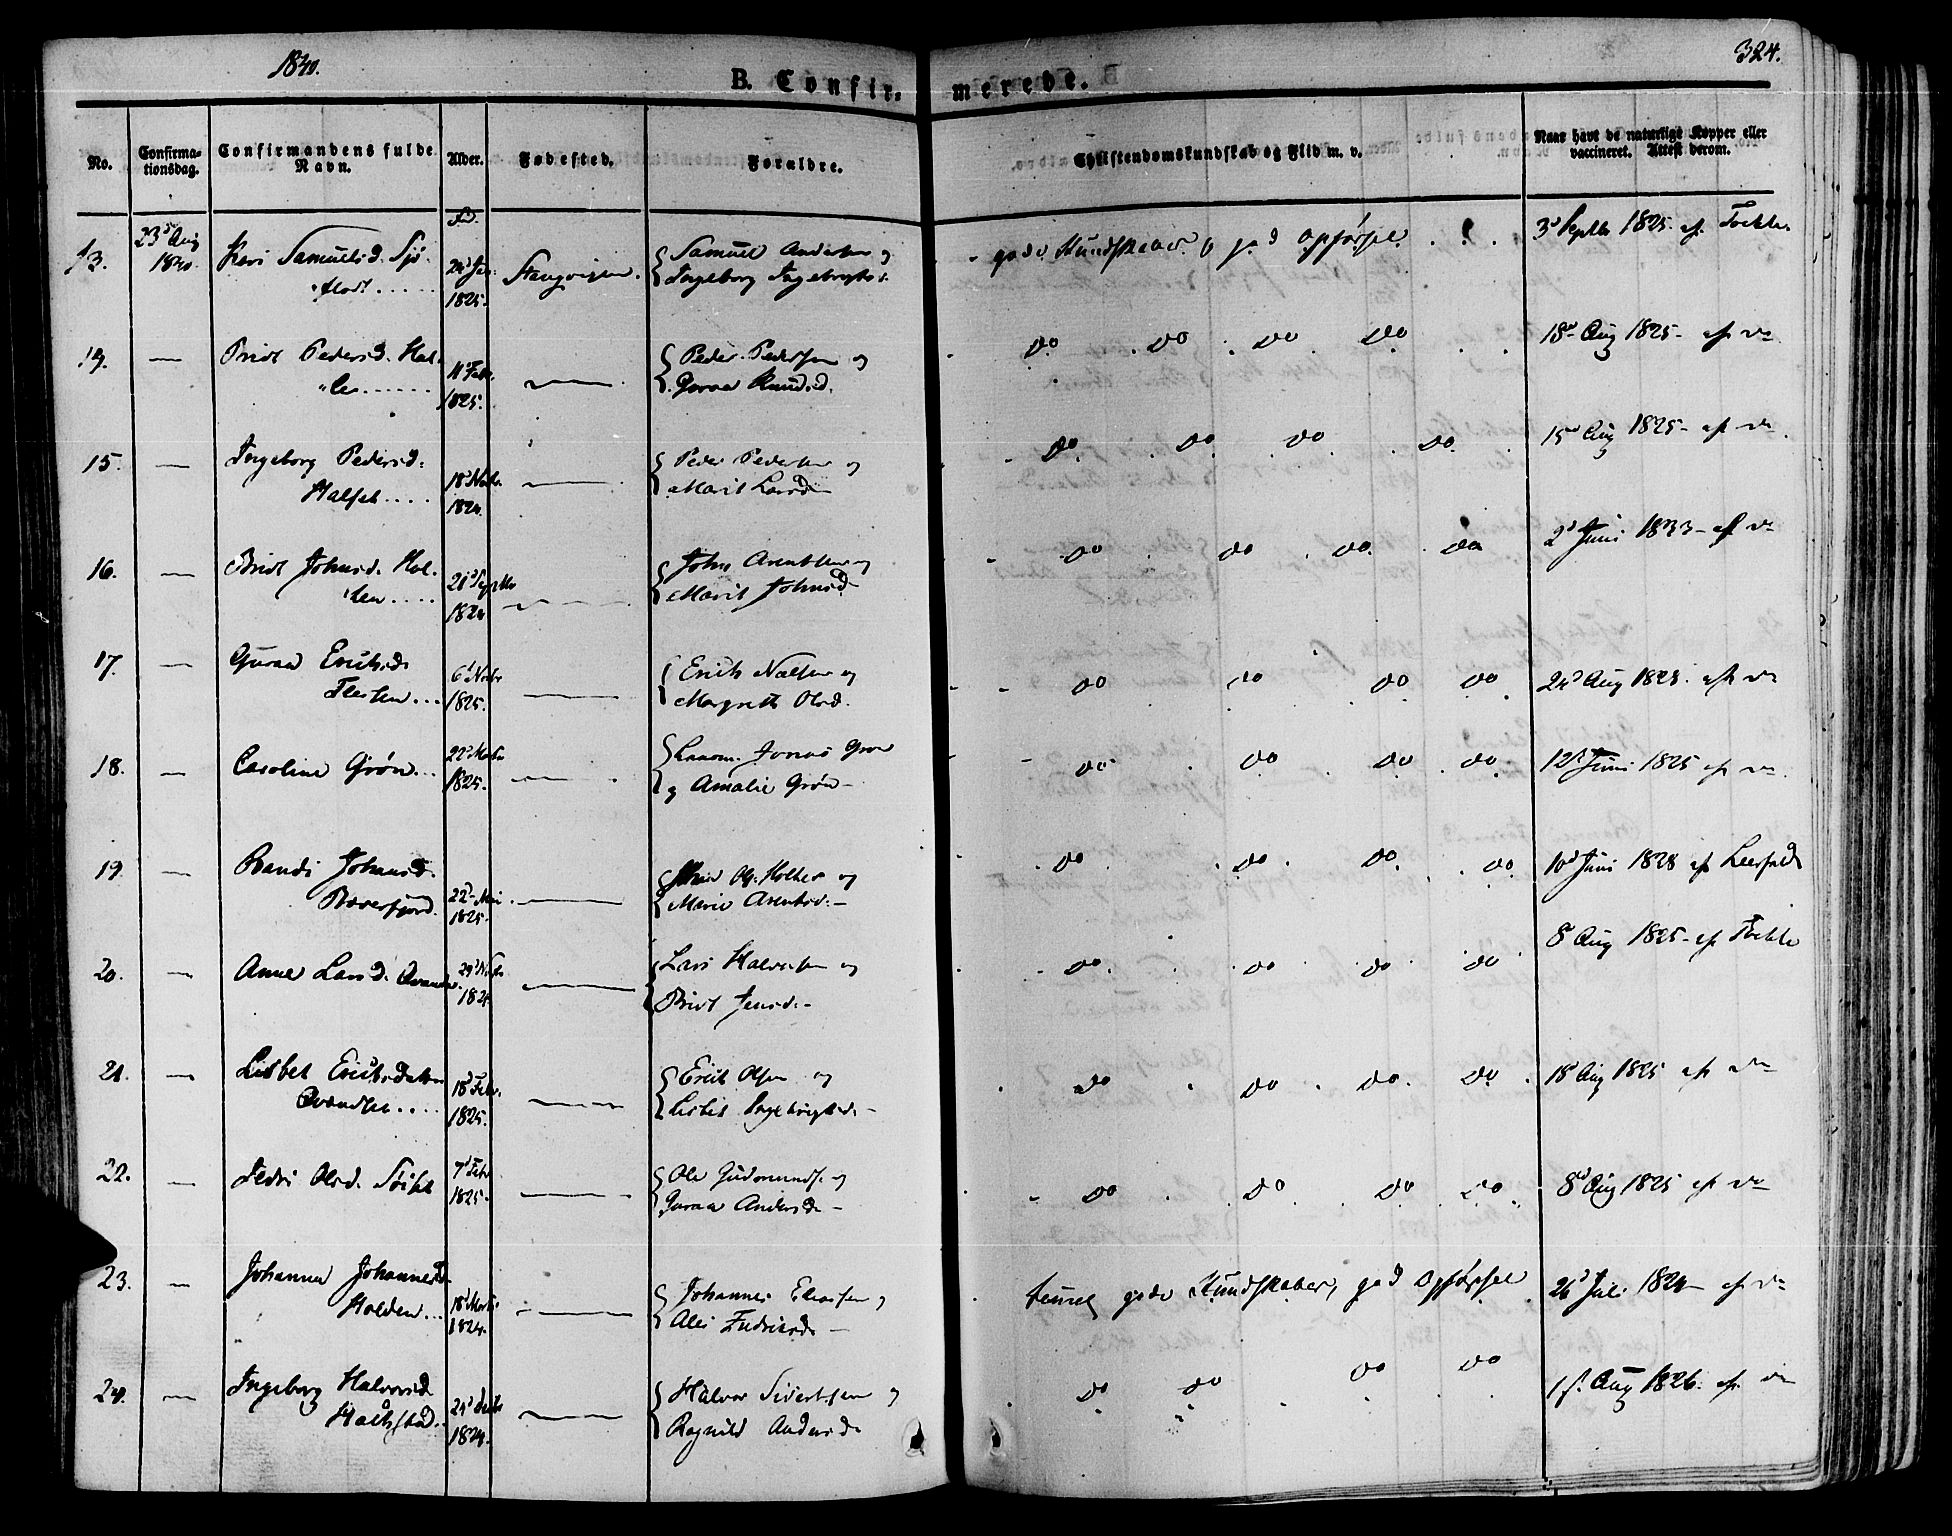 1840.
324.
B. Confir-
merede.
No.
Confirma-
tionsdag.
Confirmandens fulde
Navn.
Alder.
Fødested.
Forældre.
Christendomskundskab og Flid m. v.
Naar havt de naturlige Kopper eller
vaccineret. Attest derom.
13.
23d Aug
1840.
Kari Samuelsd. Sjø-
flodt
1825.
Stangvigen.
Samuel Andersen og
Ingeborg Ingebrigtsd.
gode Kundskaber og god Opførsel
3d Septbr 1825. af
14.
Bridt Pedersd. Hal-
11d Febr.
1825.
Peder Pedersen og
Guraa Knudsd.
Do Do Do Do
18d Aug 1825 - af do
15.
Ingeborg Pedersd.
Halset
18d Novbr.
1824.
Peder Pedersen og
Marit Larsd
Do Do Do Do
15d Aug 1825 - af do
16.
Bridt Johnsd. Hol-
ten
21d Septbr
1824
John Arentsen og
Marit Johnsd
Do Do Do Do
2d Juni 1833 - af do
17.
Guraa Erichsd
6d Novbr
1825.
Erich Nielsen og
Margrethe Olsd.
Do Do Do Do
24d Aug 1825. af do
18.
Caroline Grøn
22d Marts
1825.
Jonas Grøn
og Amalie Grøn
Do Do Do Do
12d Juni 1825 af do
19.
Randi Johansd.
Bæverfjord.
22d Mai
1825.
Holter og
Marie Arentsd.
Do Do Do Do
10d Juni 1828 af Leerfald
20.
Anne Larsd.
1824
Lars Halvorsen og
Bridt Jensd.
Do Do Do Do
8d Aug 1825 - af
21.
Lisbet Erichsdatter
18d Febr.
1825.
Erich Olsen og
Lisbet Ingebrigtsd.
Do Do Do Do
18d Aug 1825 af do
22.
Olsd.
7d Febr
1825.
Ole Gudmunds. og
Guraa Andersd
Do Do Do Do
8d Aug 1825 af do
23.
Johanna Johannesd
Holden
18d Marts
1824.
Johannes Eliasen og
Ales
temmelig gode Kundskaber, god Opførsel
26d Juli 1824 - af do
24.
Ingeborg Halvorsd
1824.
Halvor Sivertsen og
Ragnild Andersd
Do Do Do Do
1st. Aug 1826. af do